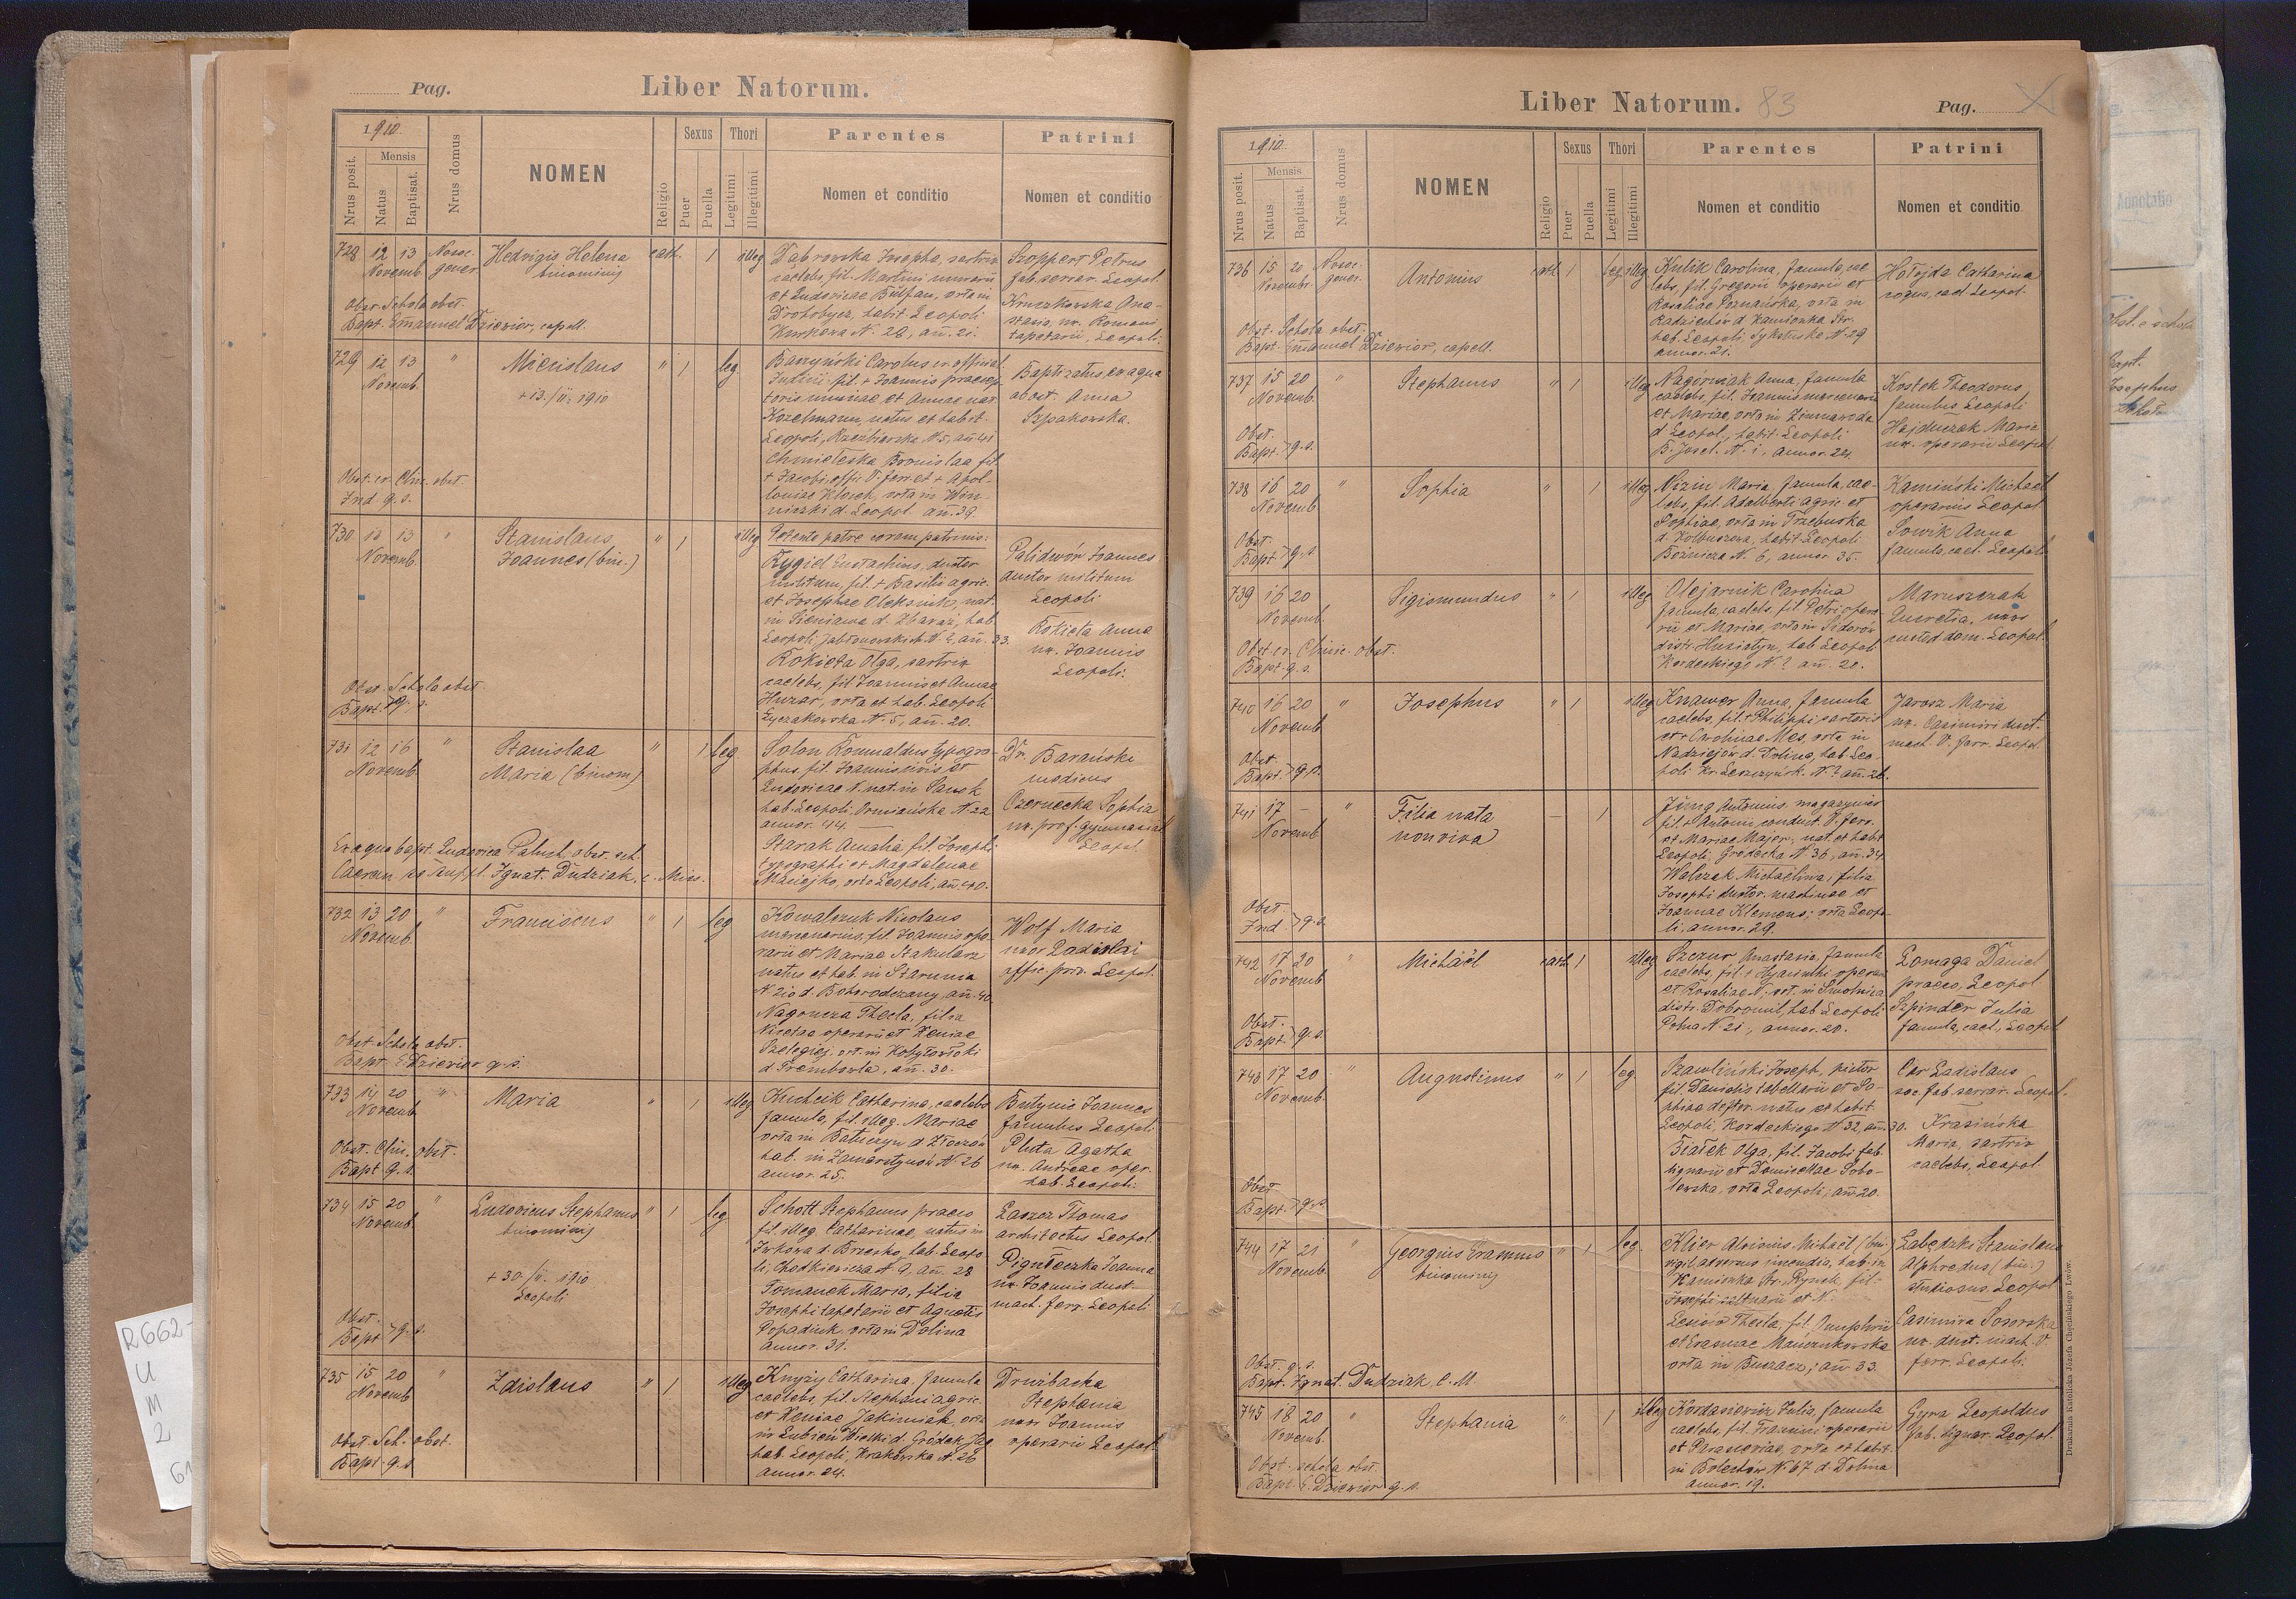 Pag.
Liber Natorum.
1910.
Nrus posit.
Mensis
Natus
Baptisat.
Nrus domus
NOMEN
Religio
Sexus
Puer
Puella
Thori
Legitimi
Illegitimi
Parentes
Nomen et conditio
Patrini
Nomen et conditio
728 12 13 Novemb. Nosoc. gener.
Hedvigis Helena
binominis
cath. 1 illeg
Dąbrowska Josepha, sartrix
caelebs, fil. Martini murarii
et Ludovicae Bülfan, orta in
Drohobycz, habit Leopoli
Kurkowa N. 28, ann. 21.
Szoppert Petrus
fab. serrar. Leopol.
Kruszkowska Ana-
stasia, ux. Romani
tapetarii, Leopoli.
Obst. Schola obst.
Bapt. Emanuel Dziewior, capell.
729 12 13 Novemb. "
Miecislaus
+ 13./11. 1910
" 1 leg
Baczyński Carolus ex official.
Judicii fil. + Joannis praecep-
toris et Annae nat.
Kozelmann, natus et habit.
Leopoli, N 5, an 41
Chmieleska Bronislaa fil.
+ Jacobi, offic. V. ferr. et + Apol-
loniae Kloseh, orta in Win-
niczki d. Leopol. an. 39.
Baptizatus ex aqua
ab obst. Anna
Szpakowska.
Obst. ex Clin. obst.
Ind q. s.
730 12 13 Novemb. "
Stanislaus
Joannes (bin.)
" 1 illeg
Petente patre coram patrinis:
Rygiel Eustachius, ductor
militum, fil. + Basilii agric.
et Josephae Oleksiuk, nat.
in Sieniawa d. Zbaraż, hab.
Leopoli, Jabłonowskich N. ?, an. 33.
Rokieta Olga, sartrix
caelebs, fil Joannis et Annae
Huzar, orta et hab. Leopoli
Łyczakowska N. 5, an. 20.
Palidwór Joannes
ductor militum
Leopoli
Rokieta Anna
ux. Joannis
Leopoli.
Obst. Schola obst.
Bapt. q. s.
731 12 16 Novemb. "
Stanislaa
Maria (binom)
" 1 leg
Solon Romualdus typogra-
phus, fil. Joannis civis et
Ludovicae N. nat. in Sanok
hab. Leopoli, Ormiańska N 22
annor. 44.
Starak Amalia fil. Josephi
typographi et Magdalenae
Maciejko, orta Leopoli, an 40.
Dr. Barański
medicus
Czernecka Sophia
ux. prof. gymnasial
Leopol.
Ex aqua bapt. Ludovica Paluch, obst. sch.
Caerem. suppl. Ignat. Dudziak, c. Miss.
732 13 20 Novemb. "
Franciscus
" 1 leg
Kowalczuk Nicolaus
mercenarius, fil. Joannis ope-
rarii et Mariae Stakulara
natus et hab. in Starunia
N. 210 d. Bohorodczany, an. 40
Nagoncza Thecla, filia
Nicetae operarii et Xeniae
Szelegiej, ort. in Kobyłowłoki
d. Trembowla, an. 30.
Wolf Maria
uxor Ladislai
offic. priv. Leopol.
Obst. Schola obst.
Bapt. E. Dziewior q. s.
733 14 20 Novemb. "
Maria
" 1 illeg
Kucheik Catharina, caelebs
famula, fil. illeg. Mariae
orta in Batuczyn d. Złoczów
hab. in Zamarstynów N 26
annor. 25.
Butynie Joannes
famulus Leopoli
Pluta Agatha
ux. Andreae oper.
hab. Leopoli.
Obst. Clin. obst.
Bapt q. s.
734 15 20 Novemb. "
Ludovicus Stephanus
binominis
+ 30./11. 1910
Leopoli
" 1 leg
Schott Stephanus praeco
fil. illeg. Catharinae, natus in
Iwkowa d. Brzesko, hab. Leopo-
li, Chodkiewicza N 9, an. 28
Tomanek Maria, filia
Josephi tapetarii et Agnetis
Popadiuk, orta in Dolina
annor. 31.
Łaszcz Thomas
architectus Leopol.
Pigułeczka Joanna
ux. Joannis duct.
mach. ferr. Leopoli
Obst.
Bapt q. s.
735 15 20 Novemb. "
Zdislaus
" 1 illeg
Knyży Catharina, famula
caelebs, fil. Stephani agric.
et Xeniae Jakimiak, orta
in Lubień Wielki d. Gródek Jag
hab. Leopoli, Krakowska N. 26
annor. 24.
Drużbacka
Stephania
uxor Joannis
operarii Leopol.
Obst. Sch. obst.
Bapt. q. s.
Liber Natorum. 83
Pag.
1910.
Nrus posit.
Mensis
Natus
Baptisat.
Nrus domus
NOMEN
Religio
Sexus
Puer
Puella
Thori
Legitimi
Illegitimi
Parentes
Nomen et conditio
Patrini
Nomen et conditio
736 15 20 Novembr. Nosoc. gener.
Antonius
cath. 1 illeg.
Kulik Carolina, famula, cae-
lebs, fil. Gregorii operarii et
Rosaliae Poznańska, orta in
Radziechów d. Kamionka Str.
hab. Leopoli Sykstuska N. 29
annor. 21.
Hołojda Catharina
coqua, cael. Leopol.
Obst. Schola obst.
Bapt. Emanuel Dziewior, capell.
737 15 20 Novemb. "
Stephanus
" 1 illeg
Nagórniak Anna, famula
caelebs, fil. Joannis mercenarii
et Mariae, orta in Zimnawoda
d. Leopol., habit. Leopoli
B. Josel. N. 1, annor. 24.
Kostek Theodorus
famulus Leopoli
Hajduczak Maria
ux. operarii Leopol.
Obst.
Bapt. q. s.
738 16 20 Novemb. "
Sophia
" 1 illeg
Nizin Maria, famula, cae-
lebs, fil. Adalberti agric. et
Sophiae, orta in Trzebuska
d. Kolbuszowa, habit Leopoli
Bożnicza N. 6, annor 35.
Kamiński Michael
operarius Leopol
Sowik Anna
famula, cael. Leopoli
Obst.
Bapt. q. s.
739 16 20 Novemb. "
Sigismundus
" 1 illeg
Olejarnik Carolina
famula, caelebs, fil. Petri opera-
rii et Mariae, orta in Sidorów
distr. Husiatyn, hab Leopol
Kordeckiego N ? an. 20.
Maruszczak
Lucretia, uxor
custod. dom. Leopol.
Obst. ex Clinic. obst.
Bapt q. s.
740 16 20 Novemb "
Josephus
" 1 illeg
Knawer Anna, famula
caelebs, fil. + Philippi sartoris
et + Carolinae Mes, orta in
Nadziejów d. Dolina, hab Leo-
poli Kr. Leszczyńsk. N ? an. 26.
Jarosz Maria
ux. Casimiri duct.
mach. V. ferr. Leopol
Obst.
Bapt. q. s.
741 17 — Novemb "
Filia nata
non viva
— 1
Jung Antonius, magazynier
fil. + Antonii conduct. V. ferr.
et Mariae Majer, nat. et habit
Leopoli, Grodecka N 36, an. 34
Walczak Michaelina, filia
Josephi ductor. machinae et
Joannae Klemens, orta Leopo-
li, annor. 29.
Obst.
Ind q. s.
742 17 20 Novemb "
Michael
cath. 1 illeg
Szczur Anastasia, famula
caelebs, fil. + Hyacinthi operarii
et Rosaliae N, ort. in Smolnica
distr. Dobromil, hab Leopoli
Polna N. 21, annor. 20.
Łomaga Daniel
praeco, Leopol
Szpinder Julia
famula, cael., Leopol
Obst.
Bapt. q. s.
743 17 20 Novemb. "
Augustinus
" 1 leg.
Szawliński Joseph, pictor
fil. Danielis tabellarii et So-
phiae natus et habit.
Leopoli, Kordeckiego N 32, ann. 30.
Białek Olga, fil. Jacobi fab.
lignarii et Domicellae Sobo-
lewska, orta Leopoli, an 20.
Car Ladislaus
soc. fab. serrar. Leopol.
Krasińska
Maria, sartrix
caelebs, Leopol
Obst.
Bapt. q. s.
744 17 21 Novemb. "
Georgius Erasmus
binominis
" 1 leg.
Klier Aloisius Michael (bin.)
vigil. adversus incendia, hab. in
Kamionka Str. Rynek, fil.
Josephi saltuarii et N.
Thecla, fil. Onuphrii
et Erasmae Mańczukowska
orta in Buczacz, an 33.
Łabędzki Stanislaus
Alphredus (bin.)
studiosus, Leopol
Casimira Sosorska
ux. duct. mach. V.
ferr. Leopoli.
Obst. q. s.
Bapt. Ignat. Dudziak, C. M.
745 18 20 Novemb. "
Stephania
" 1 illeg
Kordasiewicz Julia, famula
caelebs, fil. Francisci operarii
et Parasceviae, orta et habit.
in Bolechów N. 67 d. Dolina
annor. 19.
Gyra Leopoldus
fab. lignar. Leopol.
Obst. schola obst.
Bapt. E. Dziewior q. s.
Drukarnia Katolicka Józefa Chęcińskiego Lwów.
Annotatio
Obst. e schola
Bapt.
Josephus
R 662-
U
M
2
61